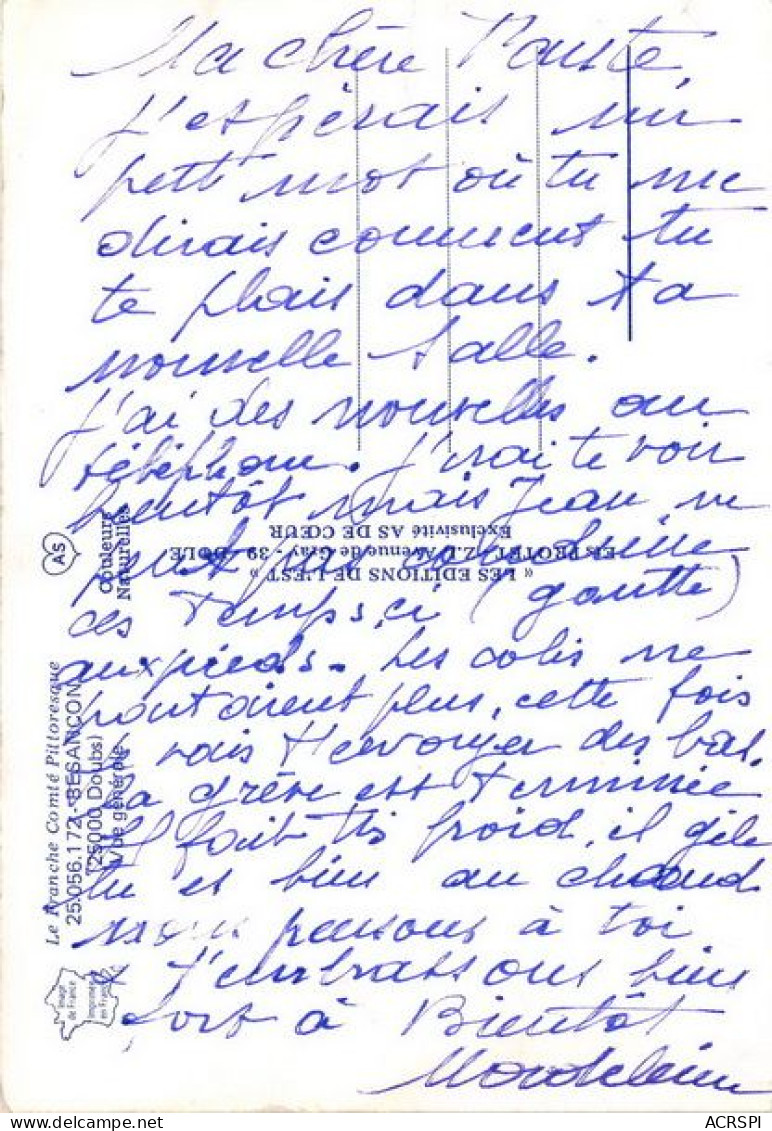 Ma chère
J'espérais un
petit mot où tu me
dirais comment tu
te plais dans ta
nouvelle salle.
J'ai des nouvelles au
téléphone. J'irai te voir
bientôt mais Jean ne
peut pas conduire
ces temps,ci (goutte)
aux pieds. Les colis ne
partaient plus, cette fois
je vais t'envoyer des bas.
La grève est terminée
Il fait très froid, il gèle
tu es bien au chaud
nous pensons à toi
& t'embrassons bien
fort à Bientôt
« LES EDITIONS DE L'EST »
Ets PROTET, Z.I. Avenue de Gray - 39 - DOLE
Exclusivité AS DE CŒUR
AS
Couleurs
Naturelles
Le Franche Comté Pittoresque
25.056.172 - BESANÇON
(25000 Doubs)
Vue générale
Image
de France
Imprimée
en France
ACRSPI